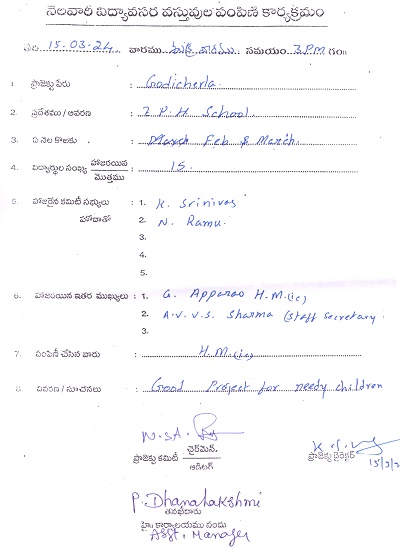 నెలవారీ విద్యావసర వస్తువుల పంపిణి కార్యక్రమం
తేది 15-03-24 వారము శుక్రవారము సమయం 3PM గం॥
1 ప్రాజెక్టు పేరు : Godicherla
2. ప్రదేశము / ఆవరణ : Z.P.H School
3. ఏ నెల కొఱకు : Feb & March
4. విద్యార్థుల సంఖ్య హాజరయిన / మొత్తము : 15
5. హాజరైన కమిటీ సభ్యులు : 1. K. Srinivas
హోదాతో 2. N. Ramu
3.
4.
5.
6. హాజరయిన ఇతర ముఖ్యులు : 1. G. Apparao H.M.(ic)
2. A.V.V.S. Sharma (Staff Secretary.
3.
7. పంపిణీ చేసిన వారు : H.M.(ic)
8. వివరణ / సూచనలు : Good Project for needy children
ప్రాజెక్టు కమిటీ చైర్‌మెన్. / ఆడిటర్
ప్రాజెక్టు డైరెక్టర్
15/3/2
P. Dhanalakshmi
తనఖీదారు
హై॥ కార్యాలయము నందు
Asst. Manager